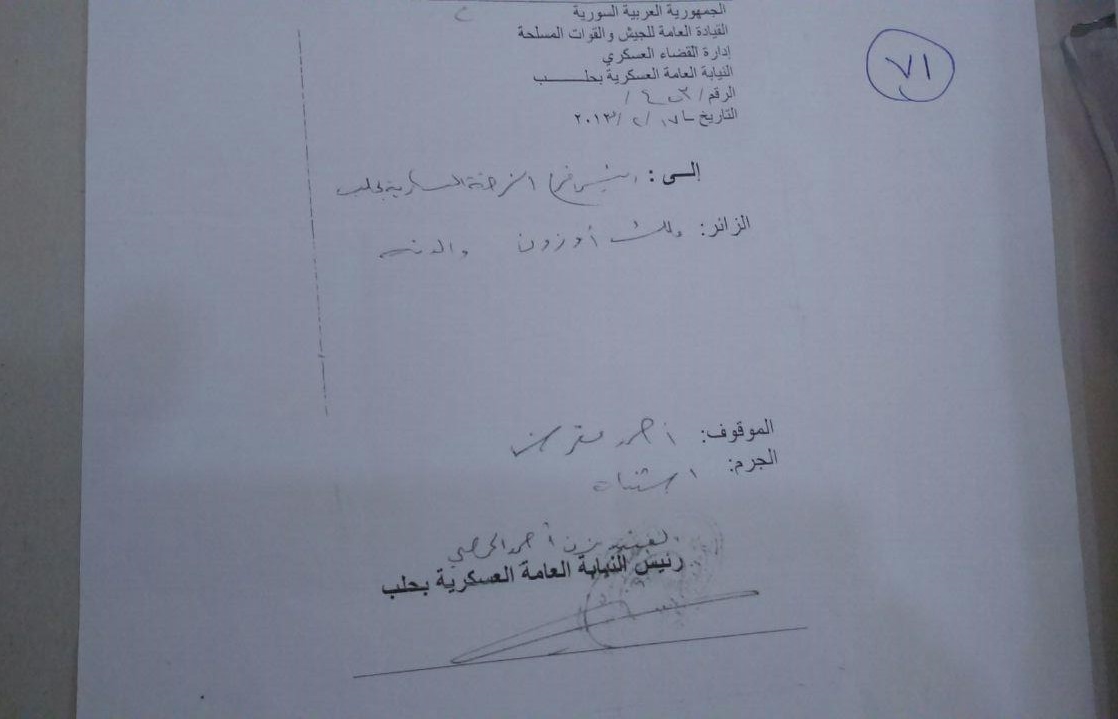 ٧١
الجمهورية العربية السورية
القيادة العامة للجيش والقوات المسلحة
إدارة القضاء العسكري
النيابة العامة العسكرية بحلـــــب
الرقم /
التاريخ ١٧ / ٢ / ٢٠١٣
إلــى : رئيس فرع الشرطة العسكرية بحلب
الزائر: ملك أوزون والدته
الموقوف: أحمد
الجرم: اشتباه
العقيد أحمد
رئيس النيابة العامة العسكرية بحلب